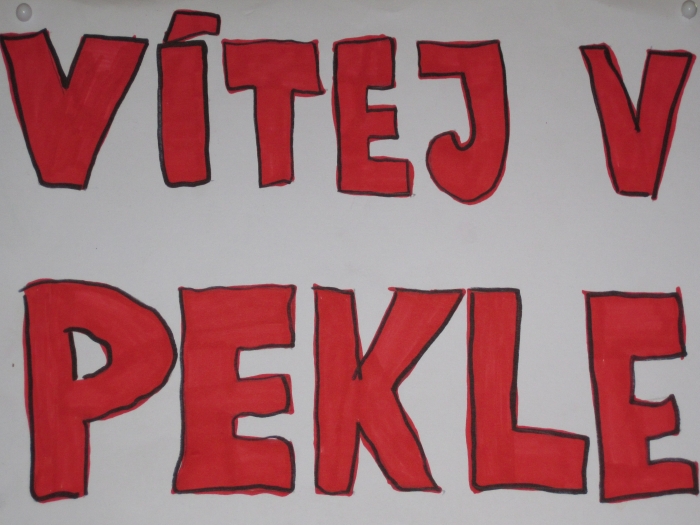 VÍTEJ V
PEKLE